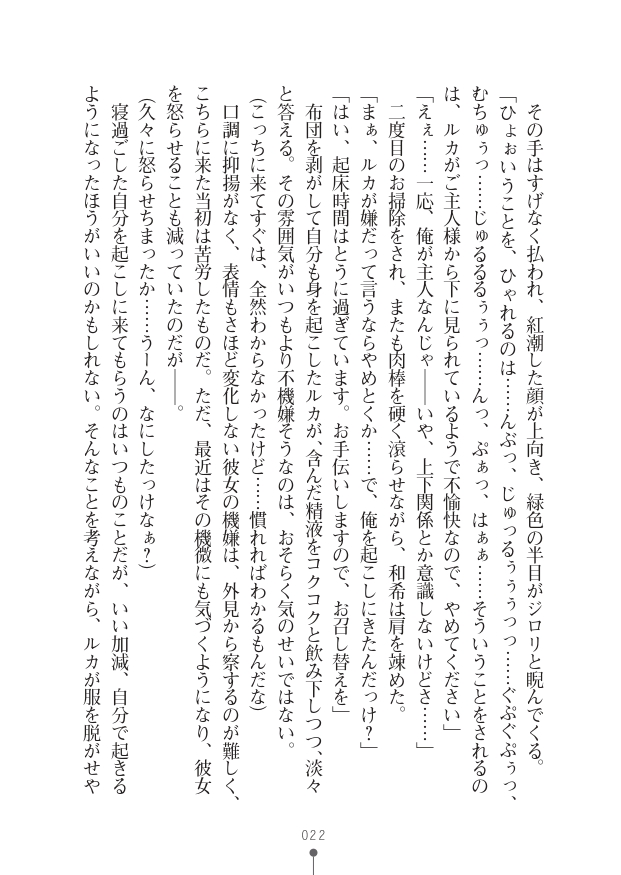 その手はすげなく払われ、紅潮した顔が上向き、緑色の半目がジロリと睨んでくる。
「ひょぉいうことを、ひゃれるのは……んぶっ、じゅつるぅぅぅっっ……ぐぷぐぷぅっ、
むちゅぅっ……じゅるるるぅぅっ……んっ、ぷぁっ、はぁぁ……そういうことをされるの
は、ルカがご主人様から下に見られているようで不愉快なので、やめてください」
「えぇ……一応、俺が主人なんじゃ――いや、上下関係とか意識しないけどさ……」
二度目のお掃除をされ、またも肉棒を硬く滾らせながら、和希は肩を竦めた。
「まぁ、ルカが嫌だって言うならやめとくか……で、俺を起こしにきたんだっけ？」
「はい、起床時間はとうに過ぎています。お手伝いしますので、お召し替えを」
布団を剥がして自分も身を起こしたルカが、含んだ精液をコクコクと飲み下しつつ、淡々
と答える。その雰囲気がいつもより不機嫌そうなのは、おそらく気のせいではない。
（こっちに来てすぐは、全然わからなかったけど……慣れればわかるもんだな）
口調に抑揚がなく、表情もさほど変化しない彼女の機嫌は、外見から察するのが難しく、
こちらに来た当初は苦労したものだ。ただ、最近はその機微にも気づくようになり、彼女
を怒らせることも減っていたのだが――。
（久々に怒らせちまったか……うーん、なにしたっけなぁ？）
寝過ごした自分を起こしに来てもらうのはいつものことだが、いい加減、自分で起きる
ようになったほうがいいのかもしれない。そんなことを考えながら、ルカが服を脱がせや
022